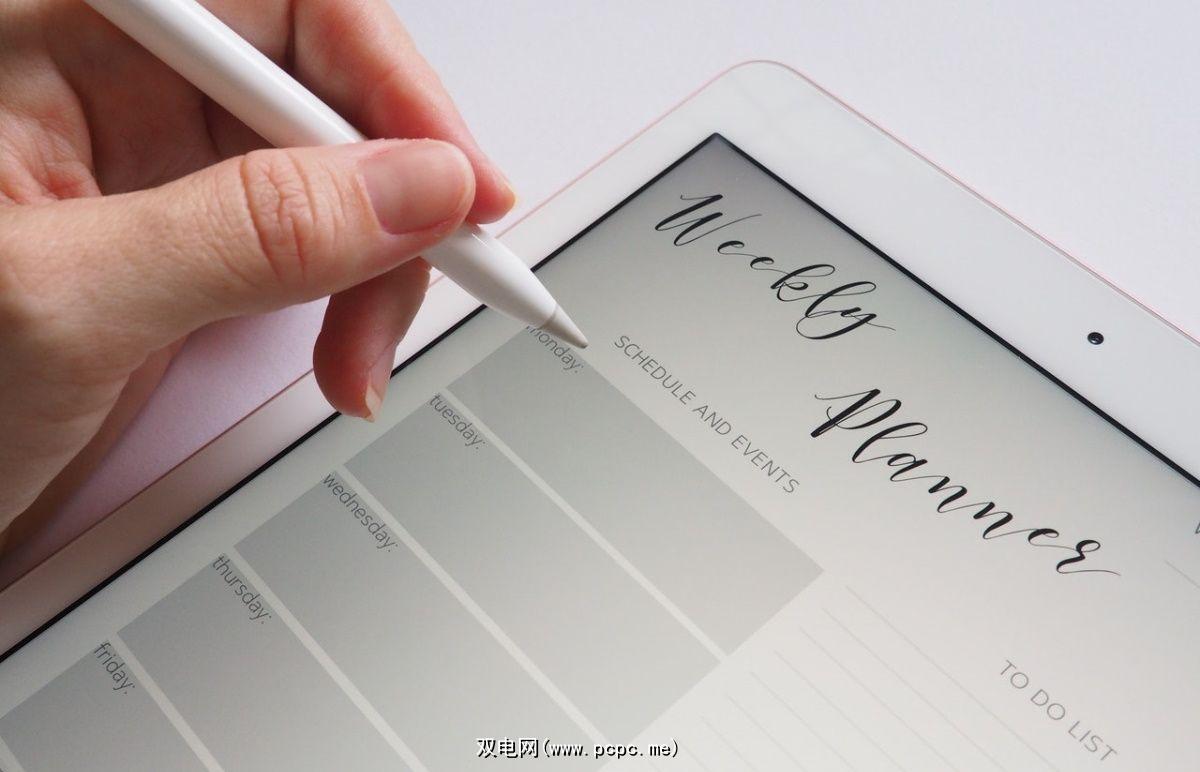 Weekly
Planner
SCHEDULE AND EVENTS
monday:
tuesday:
wednesday:
thursday:
friday:
TO DO LIST
双电网(www.pcpc.me)